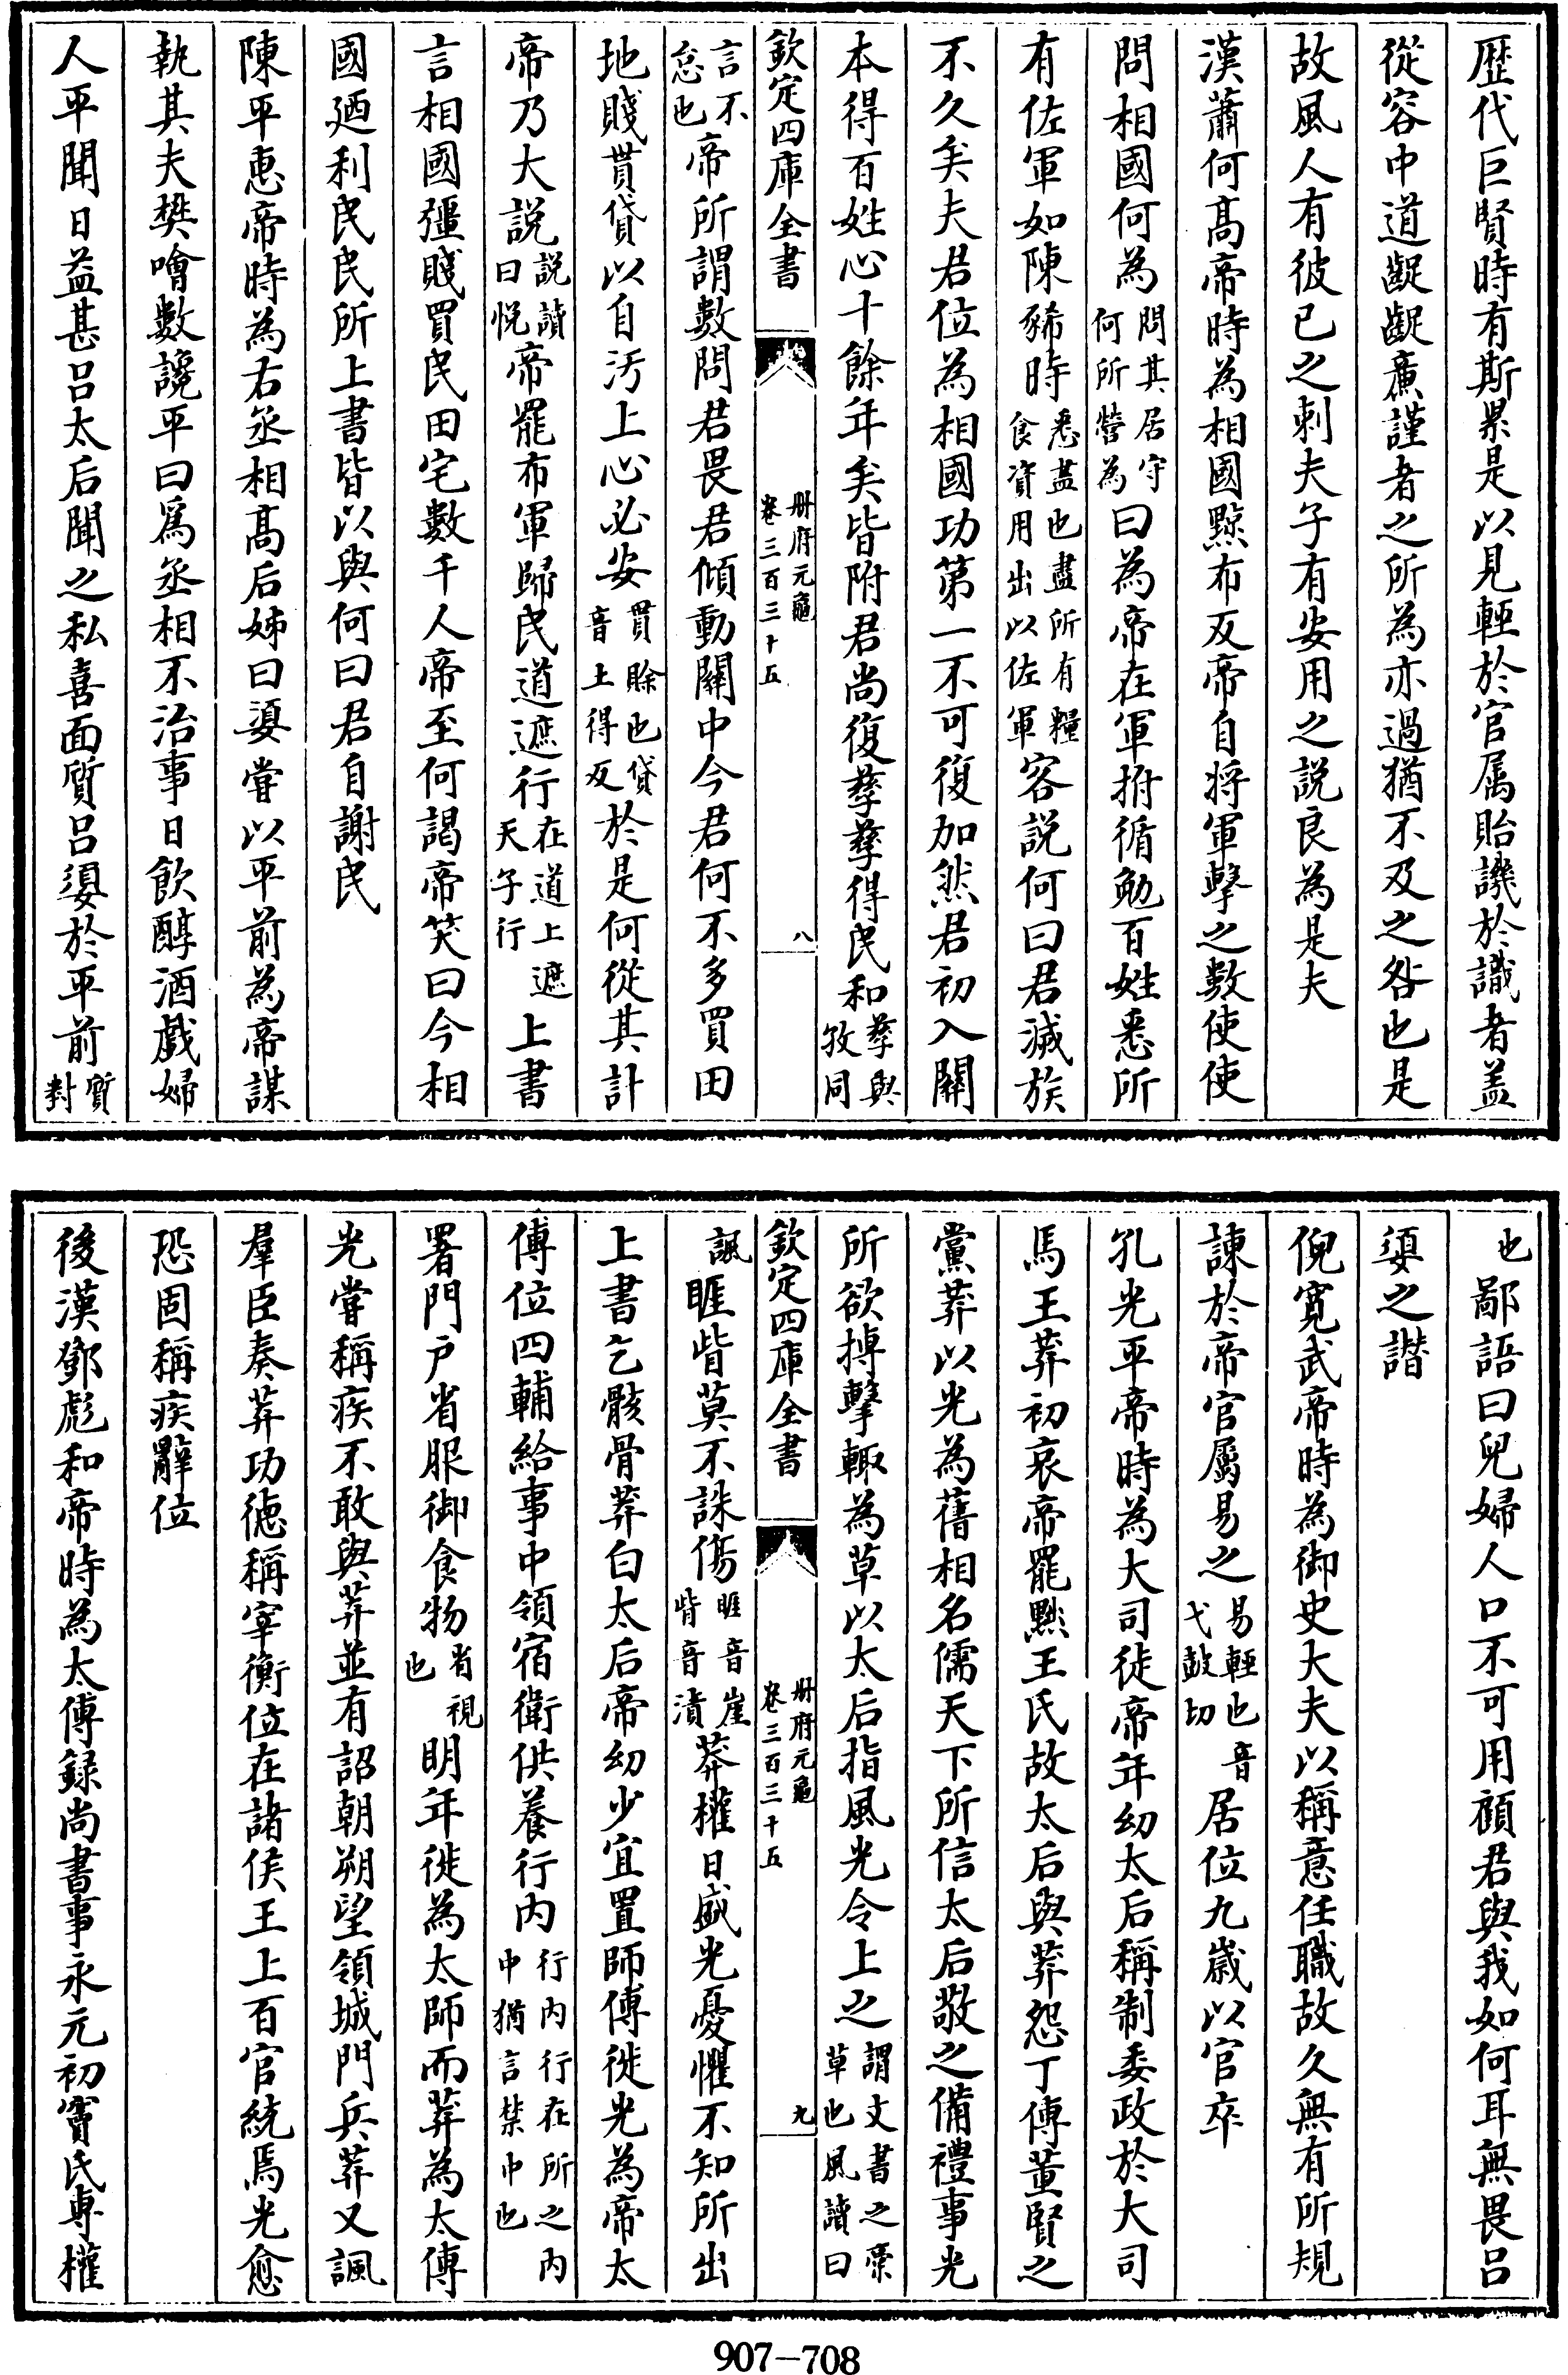 歴代巨賢時有斯累是以見輕於官属貽譏於識者盖
從容中道齪齪廉謹者之所為亦過猶不及之咎也是
故風人有彼已之刺夫子有安用之說良為是夫
漢蕭何髙帝時為相國黥布反帝自将軍擊之數使使
問相國何為問其居守何所營為曰為帝在軍拊循勉百姓悉所
有佐軍如陳豨時悉盡也盡所有糧食資用出以佐軍客説何曰君滅族
不久矣夫君位為相國功第一不可復加然君初入闗
本得百姓心十餘年矣皆附君尚復孳孳得民和孳與孜同
欽定四庫全書
册府元龜
卷三百三十五
八
言不怠也帝所謂數問君畏君傾動闗中今君何不多買田
地賤貰貸以自汚上心必安貰賒也貸音土得反於是何從其計
帝乃大説説讀曰悦帝罷布軍歸民道遮行在道上遮天子行上書
言相國彊賤買民田宅數千人帝至何謁帝笑曰今相
國廼利民民所上書皆以與何曰君自謝民
陳平惠帝時為右丞相髙后姊曰嬃嘗以平前為帝謀
執其夫樊噲數讒平曰為丞相不治事日飲醇酒戲婦
人平聞日益甚吕太后聞之私喜面質吕嬃於平前質對
也鄙語曰兒婦人口不可用顧君與我如何耳無畏吕
嬃之譖
倪寛武帝時為御史大夫以稱意任職故久無有所規
諫於帝官屬易之易輕也音弋豉切居位九歳以官卒
孔光平帝時為大司徒帝年幼太后稱制委政於大司
馬王莽初哀帝罷黜王氏故太后與莽怨丁傅董賢之
黨莽以光為舊相名儒天下所信太后敬之備禮事光
所欲搏擊輒為草以太后指風光令上之謂文書之藁草也風讀曰
欽定四庫全書
册府元龜
卷三百三十五
九
諷睚眥莫不誅傷睚音崖眥音漬莽權日盛光憂懼不知所出
上書乞骸骨莽白太后帝幼少宜置師傅徙光為帝太
傅位四輔給事中領宿衛供養行内行内行在所之内中猶言禁中也
署門户省服御食物省視也明年徙為太師而莽為太傅
光嘗稱疾不敢與莽並有詔朝朔望領城門兵莽又諷
羣臣奏莽功徳稱宰衡位在諸侯王上百官統焉光愈
恐固稱疾辭位
後漢鄧彪和帝時為太傅録尚書事永元初竇氏専權
907-708